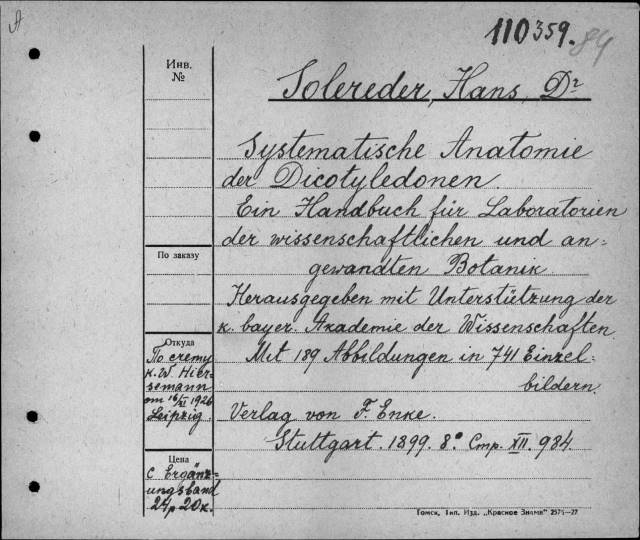 A
110359.
84
Инв.
№
Solereder, Hans, Dr
Systematische Anatomie
der Dicotyledonen.
Ein Handbuch für Laboratorien
der wissenschaftlichen und an=
gewandten Botanik.
По заказу
Herausgegeben mit Unterstützung der
k. bayer. Akademie der Wissenschaften.
Откуда
По счету
K. W. Hier-
semann
от 16/XI 1926
Leipzig.
Mit 189 Abbildungen in 741 Einzel=
bildern.
Verlag von F. Enke.
Stuttgart. 1899. 8° Стр. XII. 984.
Цена
с Ergänz-
ungsband
24 р 20 к.
Томск, Тип. Изд. „Красное Знамя" 2575—27